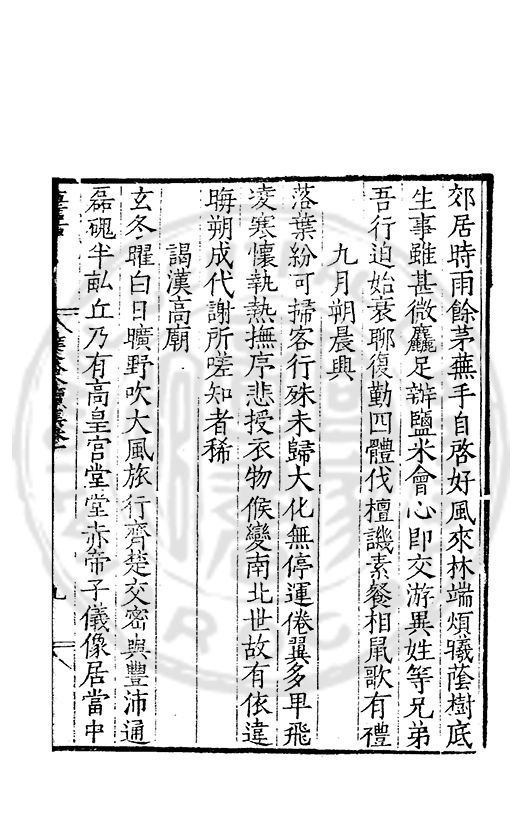 郊居時雨餘茅蕪手自啓好風來林端煩犧蔭樹底
生事雖甚微麤足辦鹽米會心即交游異姓等兄弟
吾行迫始衰聊復勤四體伐檀譏素餐相鼠歌有禮
九月朔晨興
落葉紛可掃客行殊未歸大化無停運倦翼多卑飛
凌寒懷執熱撫序悲授衣物候變南北世故有依違
晦朔成代謝所嗟知者稀
謁漢高廟
玄冬曜白日曠野吹大風旅行齊楚交密與豐沛通
磊磈半畝丘乃有高皇宫堂堂赤帝子儀像居當中
九